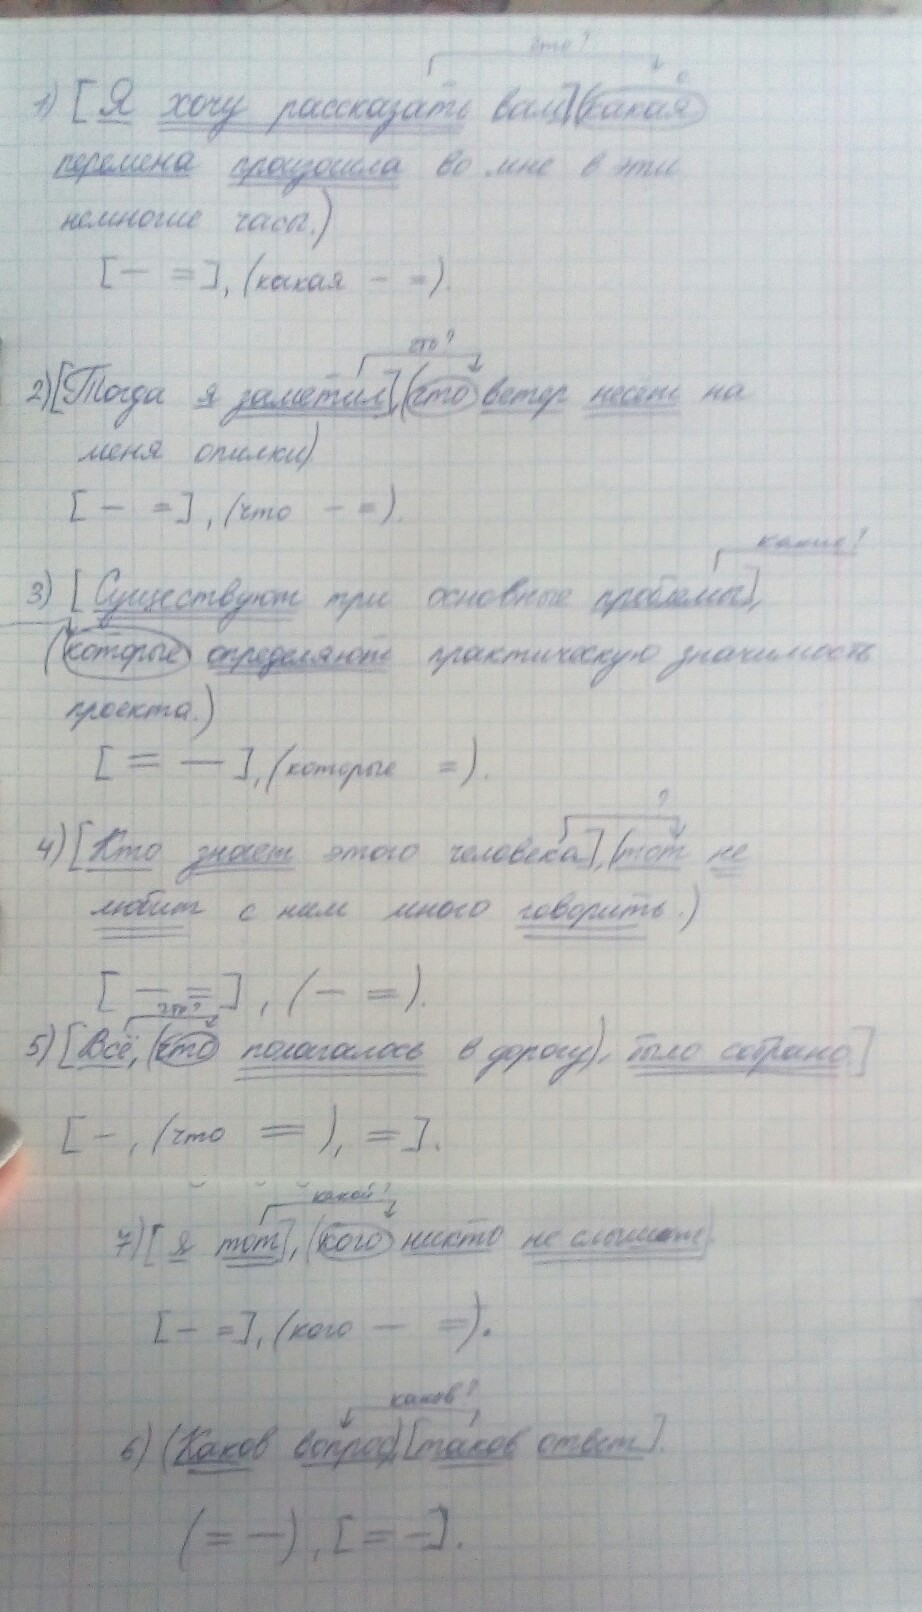 что?
1) [Я хочу рассказать вам] (какая
перемена произошла во мне в эти
немногие часы.)
[— =], (какая — =).
что?
2) [Тогда я заметил], (что ветер несет на
меня опилки)
[— =], (что — =).
какие?
3) [Существуют три основные проблемы],
(которые определяют практическую значимость
проекта.)
[= —], (которые =).
?
4) [Кто знает этого человека], (тот не
любит с ним много говорить.)
[— =], (— =).
что?
5) [Всё, (что полагалось в дорогу), было собрано]
[—, (что =), =].
какой?
7) [я тот], (кого никто не слышит].
[— =], (кого — =).
каков?
6) (Каков вопрос), [таков ответ].
(= —), [= —].